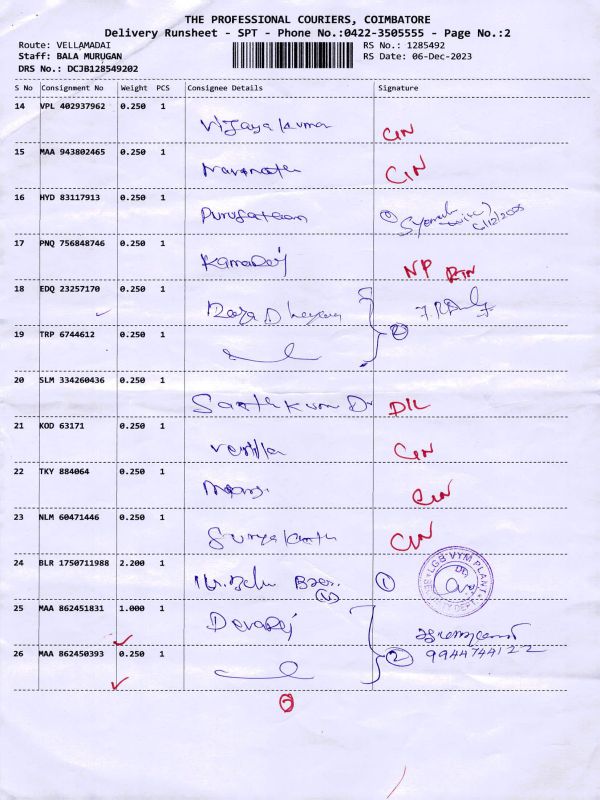 THE PROFESSIONAL COURIERS, COIMBATORE
Delivery Runsheet - SPT - Phone No.:0422-3505555 - Page No.:2
Route: VELLAMADAI RS No.: 1285492
Staff: BALA MURUGAN RS Date: 06-Dec-2023
DRS No.: DCJB128549202
S No Consignment No Weight PCS Consignee Details Signature
14 VPL 402937962 0.250 1 Vijayakumar CIN
15 MAA 943802465 0.250 1 CIN
16 HYD 83117913 0.250 1
17 PNQ 756848746 0.250 1 Kamaraj NP RTN
18 EDQ 23257170 0.250 1
19 TRP 6744612 0.250 1 2
20 SLM 334260436 0.250 1 D/L
21 KOD 63171 0.250 1 CIN
22 TKY 884064 0.250 1 CIN
23 NLM 60471446 0.250 1 CIN
24 BLR 1750711988 2.200 1 1 LGB VYM PLANT
25 MAA 862451831 1.000 1 Devaraj
26 MAA 862450393 0.250 1 2 9944744122